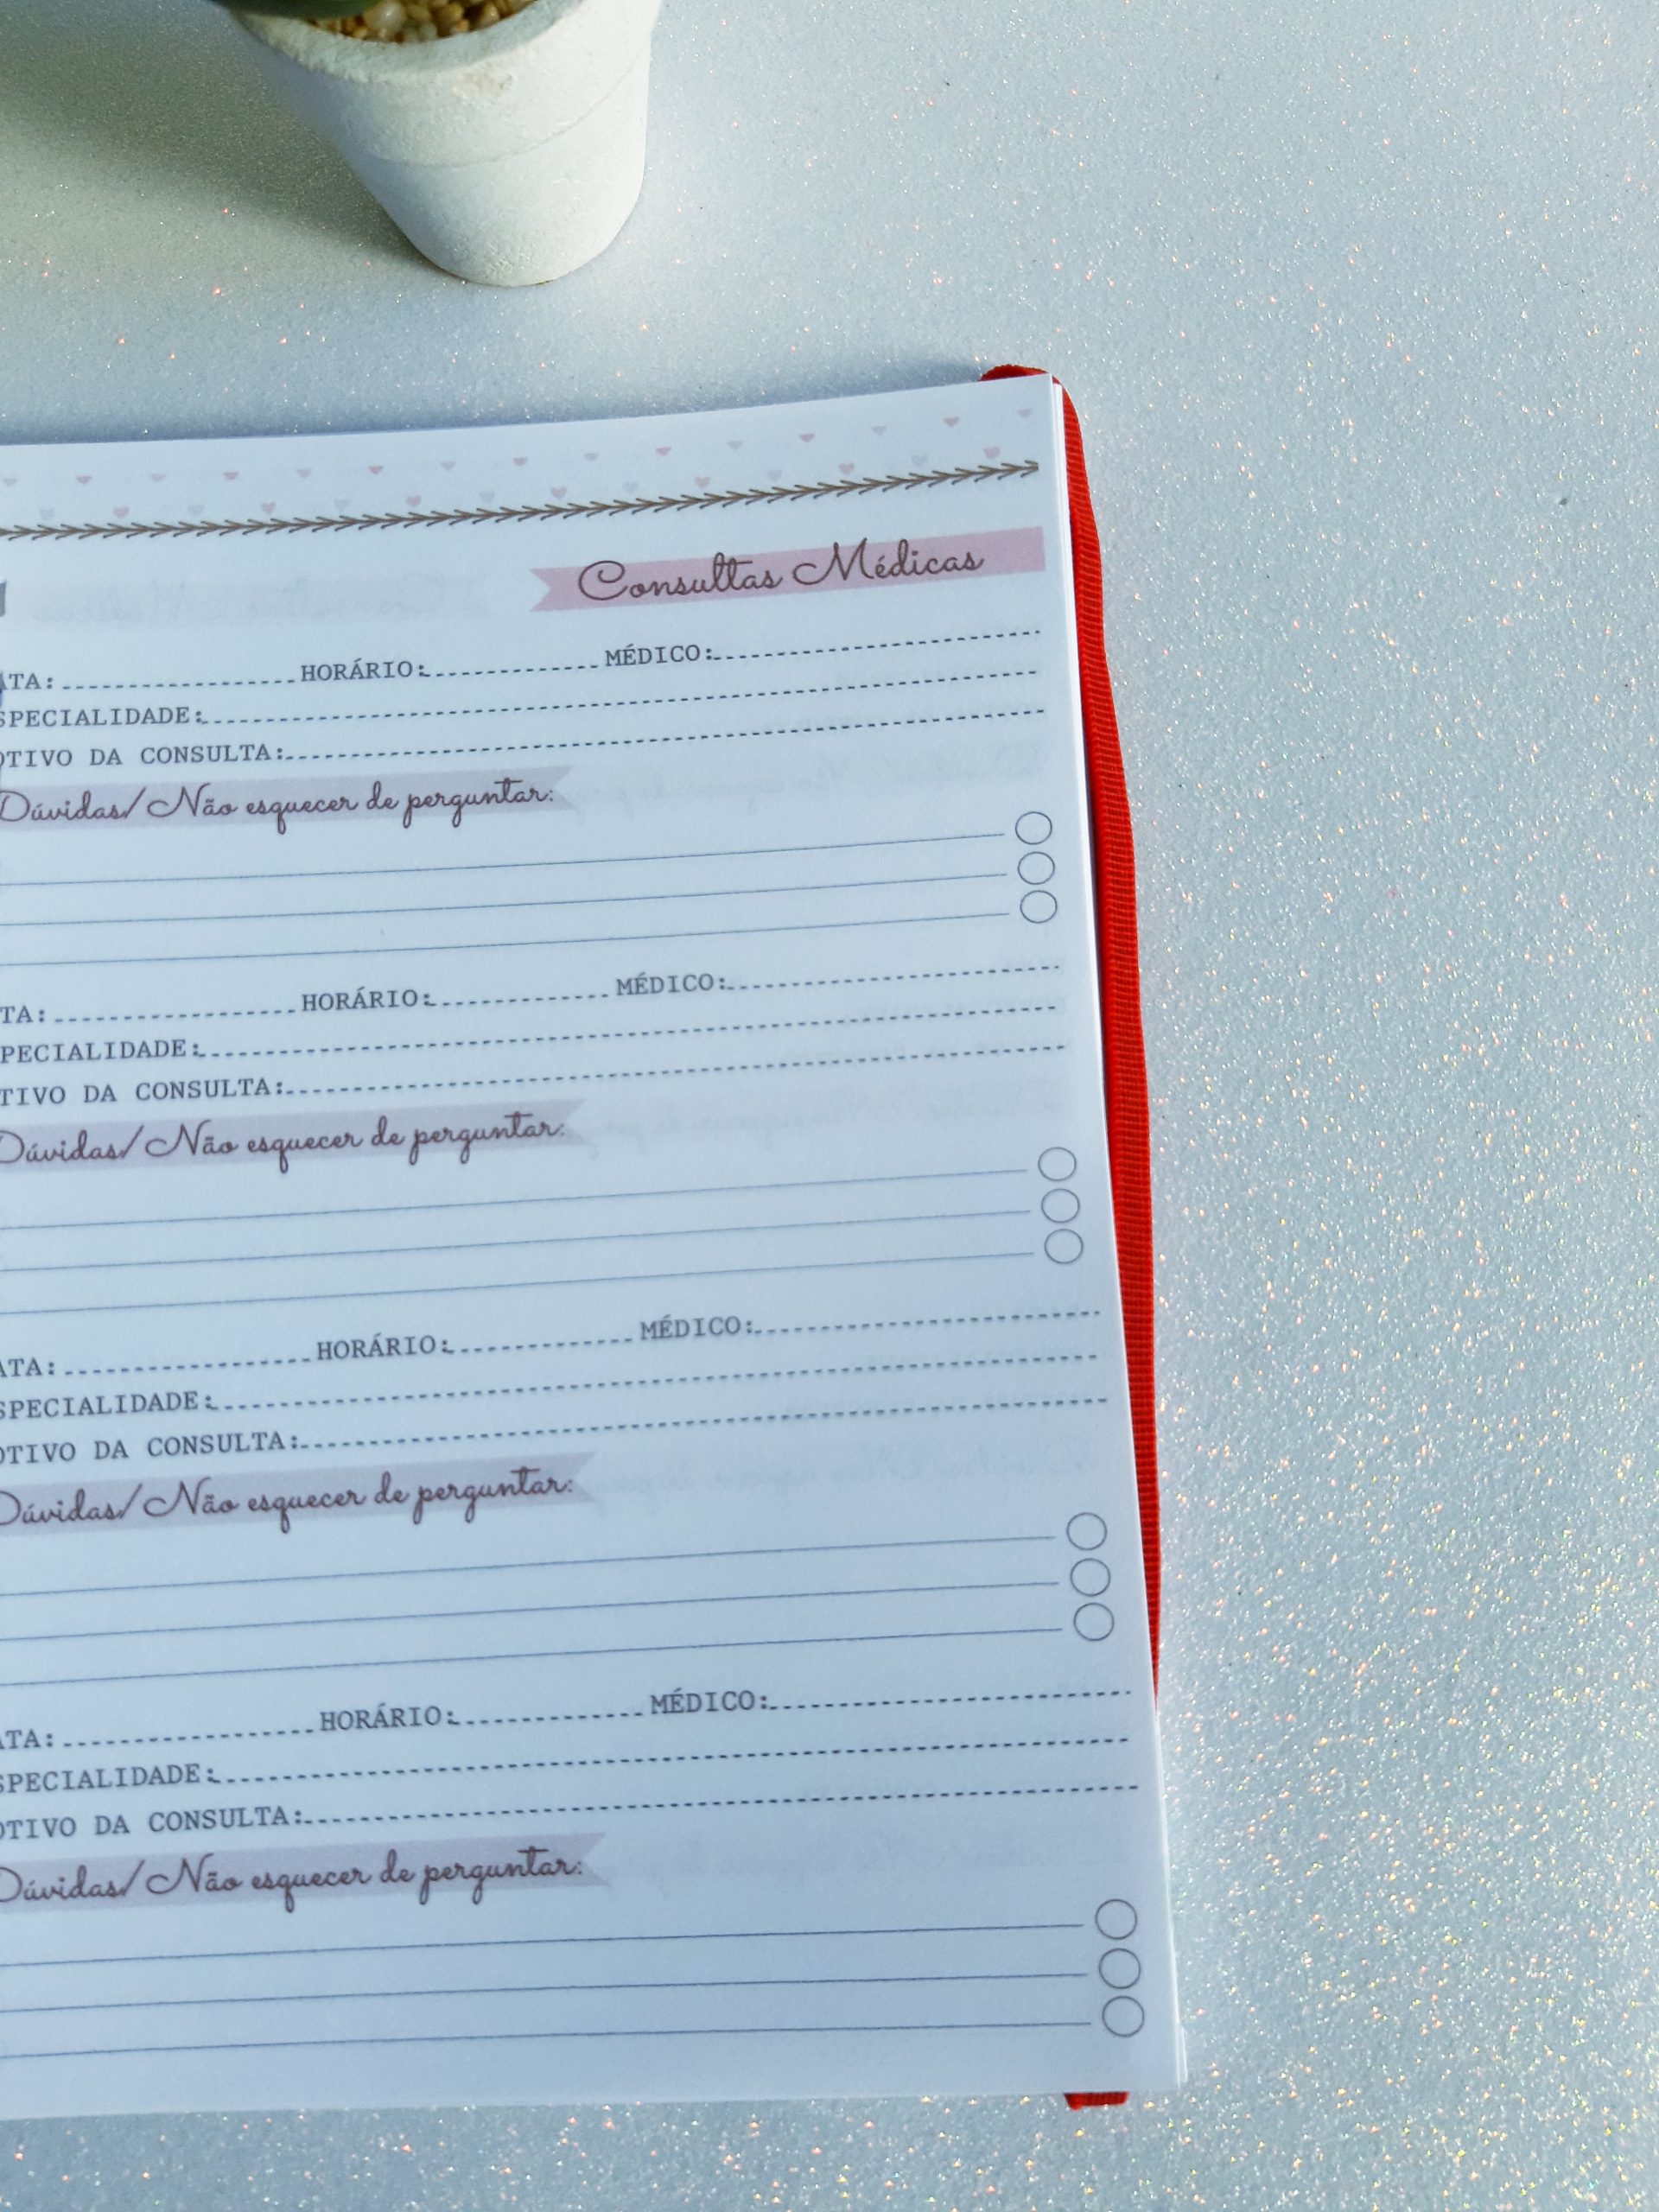 Consultas Médicas
ATA: HORÁRIO: MÉDICO:
SPECIALIDADE:
OTIVO DA CONSULTA:
Dúvidas/ Não esquecer de perguntar:
TA: HORÁRIO: MÉDICO:
PECIALIDADE:
TIVO DA CONSULTA:
Dúvidas/ Não esquecer de perguntar:
ATA: HORÁRIO: MÉDICO:
SPECIALIDADE:
OTIVO DA CONSULTA:
Dúvidas/ Não esquecer de perguntar:
ATA: HORÁRIO: MÉDICO:
SPECIALIDADE:
OTIVO DA CONSULTA:
Dúvidas/ Não esquecer de perguntar: